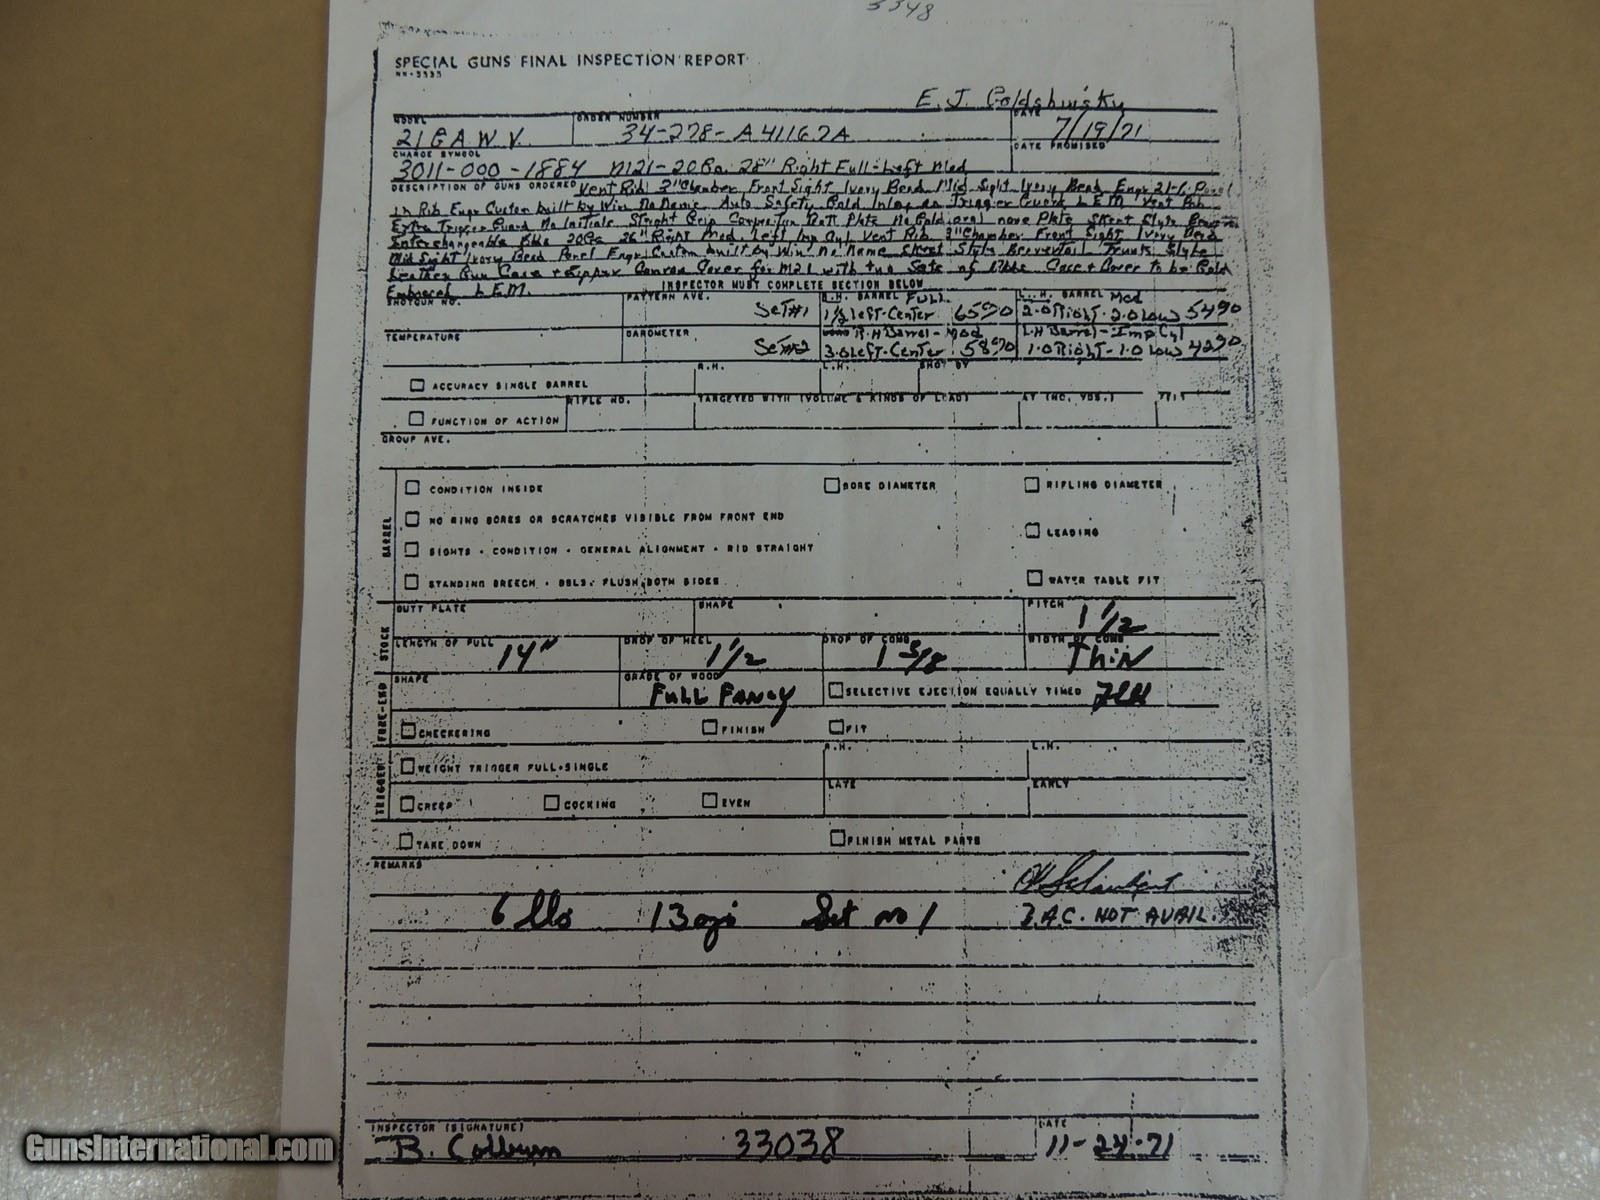 5348
SPECIAL GUNS FINAL INSPECTION REPORT
E. J.
MODEL ORDER NUMBER DATE
21 G A W V. 34-278-A 41167A 7/19/71
CHARGE SYMBOL DATE PROMISED
3011-000-1884 M21-20Ga. 28" Right Full-Left Mod
DESCRIPTION OF GUNS ORDERED Vent Rib 3" Chamber Front Sight Ivory Bead Mid Sight Ivory Bead Engr 21-6 Panel
in Rib Engr Custom built by Win No Name Auto Safety Gold Inlay on Trigger Guard L.E.M. Vent Rib
Extra Trigger Guard No Initials Straight Grip Composition Butt Plate No Gold oval name Plate Skeet Style
Interchangeable Bbls 20Ga 26" Right Mod. Left Imp Cyl Vent Rib 3" Chamber Front Sight Ivory Bead
Mid Sight Ivory Bead Panel Engr Custom built by Win No Name Skeet Style Beavertail Trunk Style
Leather Gun Case + Canvas Cover for M21 with two Sets of Bbls Case + Cover to be Gold
Embossed L.E.M. INSPECTOR MUST COMPLETE SECTION BELOW
SHOTGUN NO. PATTERN AVE. Set #1 R.H. BARREL FULL L.H. BARREL Mod
1 1/2 left-Center 65% 2.0 Right-2.0 Low 54%
TEMPERATURE BAROMETER Set #2 R.H Barrel-Mod L.H Barrel-Imp Cyl
3.0 Left-Center 58% 1.0 Right-1.0 Low 42%
ACCURACY SINGLE BARREL R.H. L.H. SHOT BY
FUNCTION OF ACTION RIFLE NO. TARGETED WITH (VOLUME & KINDS OF LOAD) AT (NO. YDS.)
GROUP AVE.
BARREL
CONDITION INSIDE BORE DIAMETER RIFLING DIAMETER
NO RING BORES OR SCRATCHES VISIBLE FROM FRONT END
LEADING
SIGHTS - CONDITION - GENERAL ALIGNMENT - RIB STRAIGHT
STANDING BREECH - BBLS. FLUSH BOTH SIDES WATER TABLE FIT
STOCK
BUTT PLATE SHAPE PITCH 1 1/2
LENGTH OF PULL 14" DROP OF HEEL 1 1/2 DROP OF COMB 1 5/8 WIDTH OF COMB Thin
FORE-END
SHAPE GRADE OF WOOD FULL FANCY SELECTIVE EJECTION EQUALLY TIMED
CHECKERING FINISH FIT
TRIGGER
WEIGHT TRIGGER PULL-SINGLE R.H. L.H.
CREEP COCKING EVEN LATE EARLY
TAKE DOWN FINISH METAL PARTS
REMARKS
OK
6 lbs 13 ozs Set no 1 NOT AVAIL.
INSPECTOR (SIGNATURE) DATE
B. 33038 11-24-71
GunsInternational.com